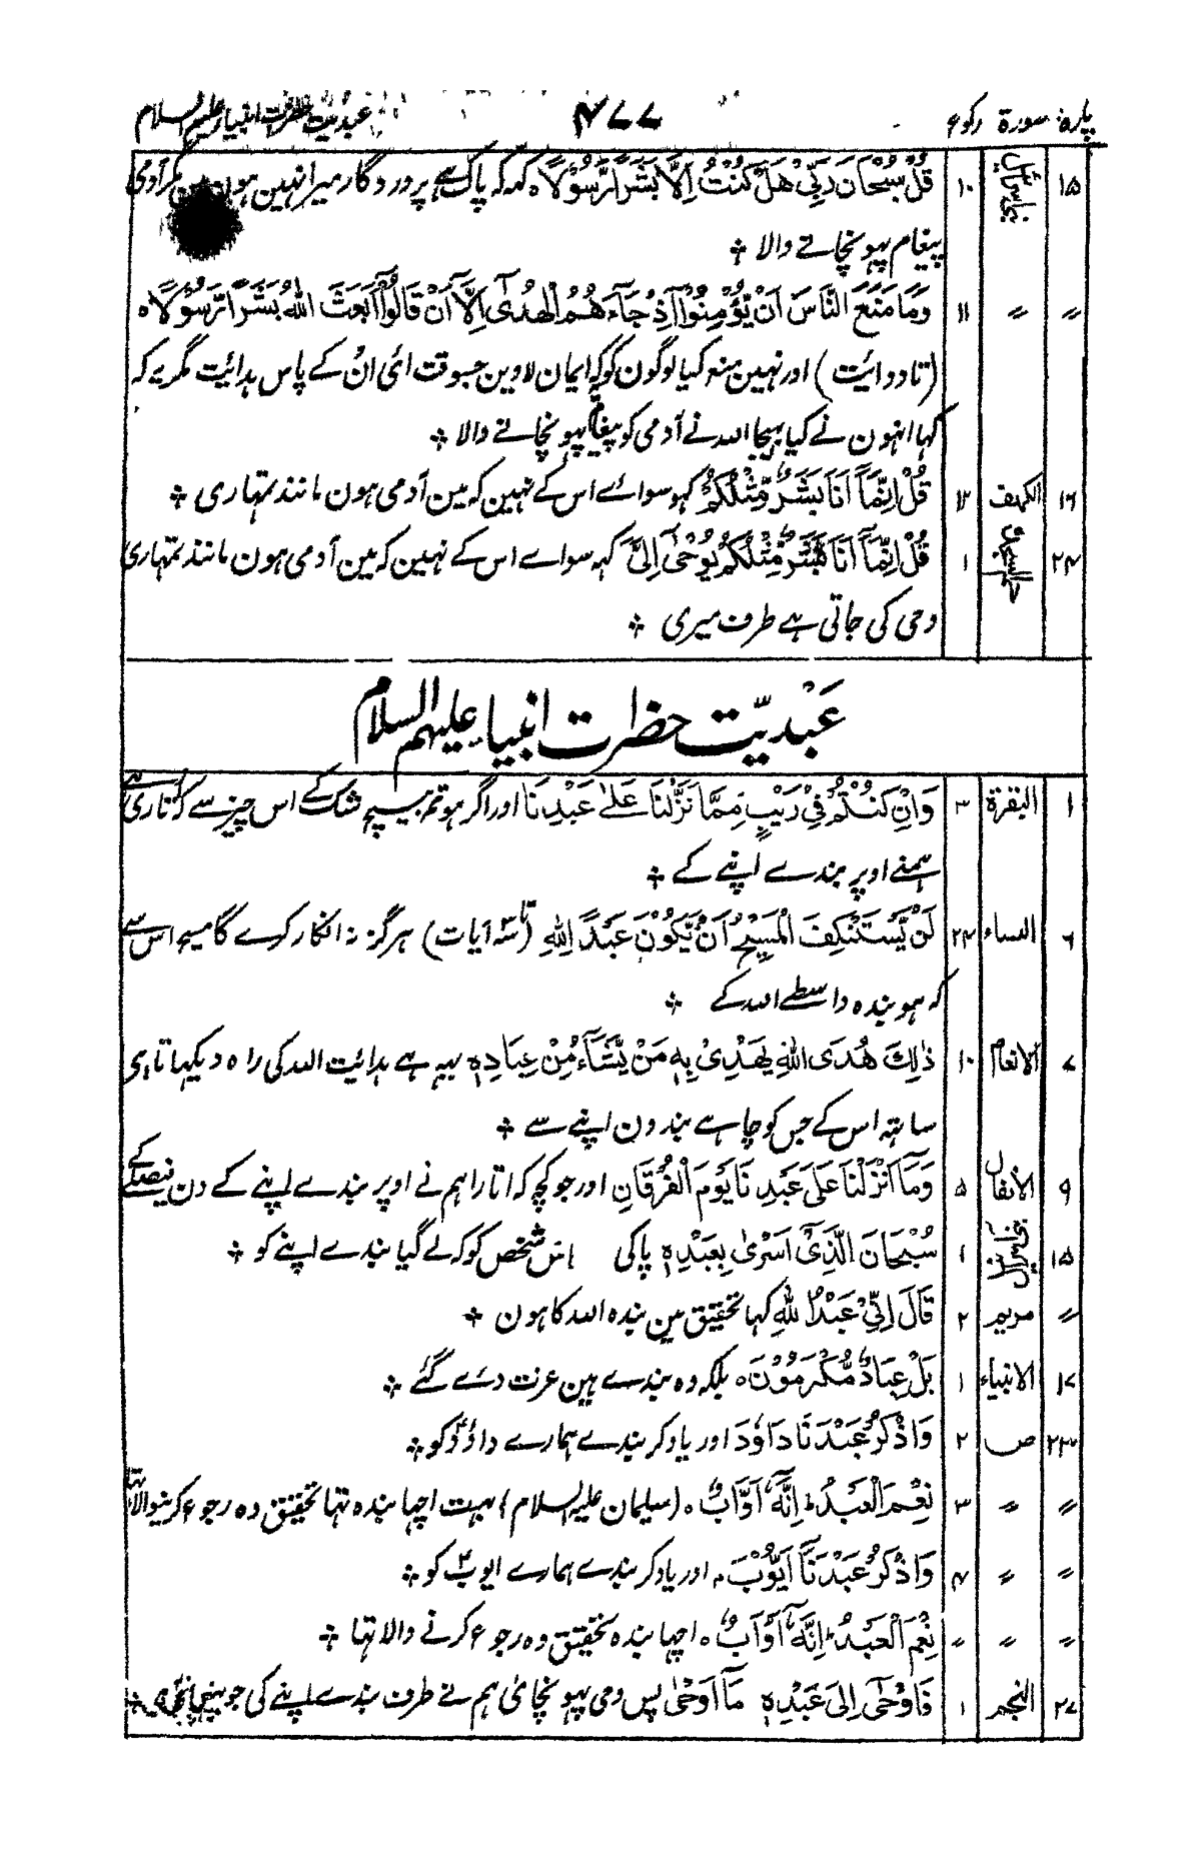 پارہ: سورۃ رکوع ۴۷۷ عبدیّت حضرات انبیاء علیہم السلام
۱۵ بنی اسرائیل ۱۰ قُلْ سُبْحَانَ رَبِّیْ هَلْ كُنْتُ اِلَّا بَشَرًا رَّسُوْلًا ہ کہہ کہ پاک ہے پروردگار میرا نہین ہون مین مگر آدمی
پیغام پہونچانے والا ؞
〃 〃 ۱۱ وَمَا مَنَعَ النَّاسَ اَنْ یُّؤْمِنُوْۤا اِذْ جَآءَهُمُ الْهُدٰۤی اِلَّاۤ اَنْ قَالُوْۤا اَبَعَثَ اللّٰهُ بَشَرًا رَّسُوْلًا ہ
(تا دو ائیت) اور نہین منع کیا لوگون کو کہ ایمان لاوین جسوقت ائی اُن کے پاس ہدائیت مگر یے کہ
کہا انہون نے کیا بہیجا اللہ نے آدمی کو پیغام پہونچانے والا ؞
۱۶ الکہف ۱۲ قُلْ اِنَّمَاۤ اَنَا بَشَرٌ مِّثْلُكُمْ کہو سوائے اس کے نہین کہ مین آدمی ہون مانند تمہاری ؞
۲۴ حم السجدہ ۱ قُلْ اِنَّمَاۤ اَنَا بَشَرٌ مِّثْلُكُمْ یُوْحٰۤی اِلَیَّ کہہ سواے اس کے نہین کہ مین آدمی ہون مانند تمہاری
وحی کی جاتی ہے طرف میری ؞
عَبْدیّت حضرات انبیاء علیہم السلام
۱ البقرۃ ۳ وَاِنْ كُنْتُمْ فِیْ رَیْبٍ مِّمَّا نَزَّلْنَا عَلٰی عَبْدِنَا اور اگر ہو تم بیچ شک کے اس چیز سے کہ اُتاری ہے
ہمنے اوپر بندے اپنے کے ؞
۶ النساء ۲۴ لَنْ یَّسْتَنْكِفَ الْمَسِیْحُ اَنْ یَّكُوْنَ عَبْدًا لِلّٰهِ (تا سہ آیات) ہرگز نہ انکار کرے گا مسیح اس سے
کہ ہو بندہ واسطے اللہ کے ؞
۷ الانعام ۱۰ ذٰلِكَ هُدَی اللّٰهِ یَهْدِیْ بِهٖ مَنْ یَّشَآءُ مِنْ عِبَادِهٖ یہہ ہے ہدائیت اللہ کی راہ دیکہاتا ہی
ساتہہ اس کے جس کو چاہے بندون اپنے سے ؞
۹ الانفال ۵ وَمَاۤ اَنْزَلْنَا عَلٰی عَبْدِنَا یَوْمَ الْفُرْقَانِ اور جو کچہ کہ اتارا ہم نے اوپر بندے اپنے کے دن فیصلے کے
۱۵ بنی اسرائیل ۱ سُبْحَانَ الَّذِیْۤ اَسْرٰی بِعَبْدِهٖ پاکی اس شخص کو کہ لے گیا بندے اپنے کو ؞
〃 مریم ۲ قَالَ اِنِّیْ عَبْدُ اللّٰهِ کہا تحقیق مین بندہ اللہ کا ہون ؞
۱۷ الانبیاء ۱ بَلْ عِبَادٌ مُّكْرَمُوْنَ ہ بلکہ وہ بندے ہین عزت دئے گئے ؞
۲۳ ص ۲ وَاذْكُرْ عَبْدَنَا دَاوٗدَ اور یاد کر بندے ہمارے داؤدؑ کو ؞
〃 〃 ۳ نِعْمَ الْعَبْدُ ؕ اِنَّهٗۤ اَوَّابٌ ہ (سلیمان علیہ السلام) بہت اچہا بندہ تہا تحقیق وہ رجوع کرنیوالا تہا
〃 〃 ۴ وَاذْكُرْ عَبْدَنَاۤ اَیُّوْبَ ۘ اور یاد کر بندے ہمارے ایوبؑ کو ؞
〃 〃 〃 نِعْمَ الْعَبْدُ ؕ اِنَّهٗۤ اَوَّابٌ ہ اچہا بندہ تحقیق وہ رجوع کرنے والا تہا ؞
۲۷ النجم ۱ فَاَوْحٰۤی اِلٰی عَبْدِهٖ مَاۤ اَوْحٰی پس وحی پہونچائی ہم نے طرف بندے اپنے کی جو پہنچانی تھی ؞